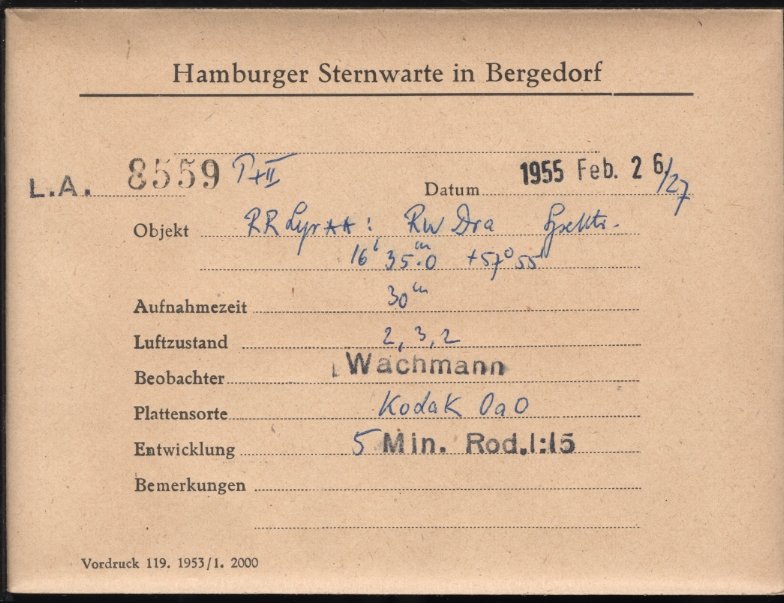 Hamburger Sternwarte in Bergedorf
L.A. 8559 P+II Datum 1955 Feb. 26/27
Objekt RR Lyr ** : RW Dra Spektr.
16h 35m.0 +57° 55'
Aufnahmezeit 30m
Luftzustand 2, 3, 2
Beobachter Wachmann
Plattensorte Kodak OaO
Entwicklung 5 Min. Rod.1:15
Bemerkungen
Vordruck 119. 1953/1. 2000